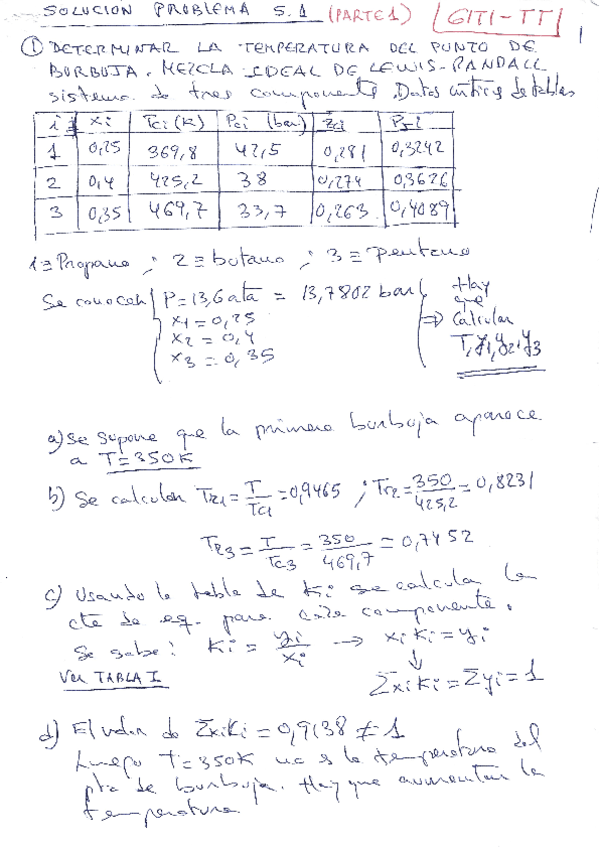 SOLUCION PROBLEMA 5.1 (PARTE 1) GITI-TT
1
① DETERMINAR LA TEMPERATURA DEL PUNTO DE
BURBUJA. MEZCLA IDEAL DE LEWIS-RANDALL
sistema de tres componentes. Datos críticos de tablas
i xi Tci (K) Pci (bar) Zci
1 0,25 369,8 42,5 0,281 0,3242
2 0,4 425,2 38 0,274 0,3626
3 0,35 469,7 33,7 0,263 0,4089
1≡Propano ; 2≡butano ; 3≡pentano
Se conocen P=13,6 ata = 13,7802 bar
x1=0,25
x2=0,4
x3=0,35
Hay
que
⇒ Calcular
T, y1, y2, y3
a) Se supone que la primera burbuja aparece
a T=350K
b) Se calculan TR1=T/Tc1=0,9465 ; Tr2=350/425,2=0,8231
TR3=T/Tc3=350/469,7=0,7452
c) Usando la tabla de Ki se calculan la
cte de eq. para cada componente.
Se sabe: Ki=yi/xi → xiKi=yi
↓
Ver TABLA I ΣxiKi=Σyi=1
d) El valor de ΣxiKi=0,9138≠1
Luego T=350K no es la temperatura del
pto de burbuja. Hay que aumentar la
temperatura.